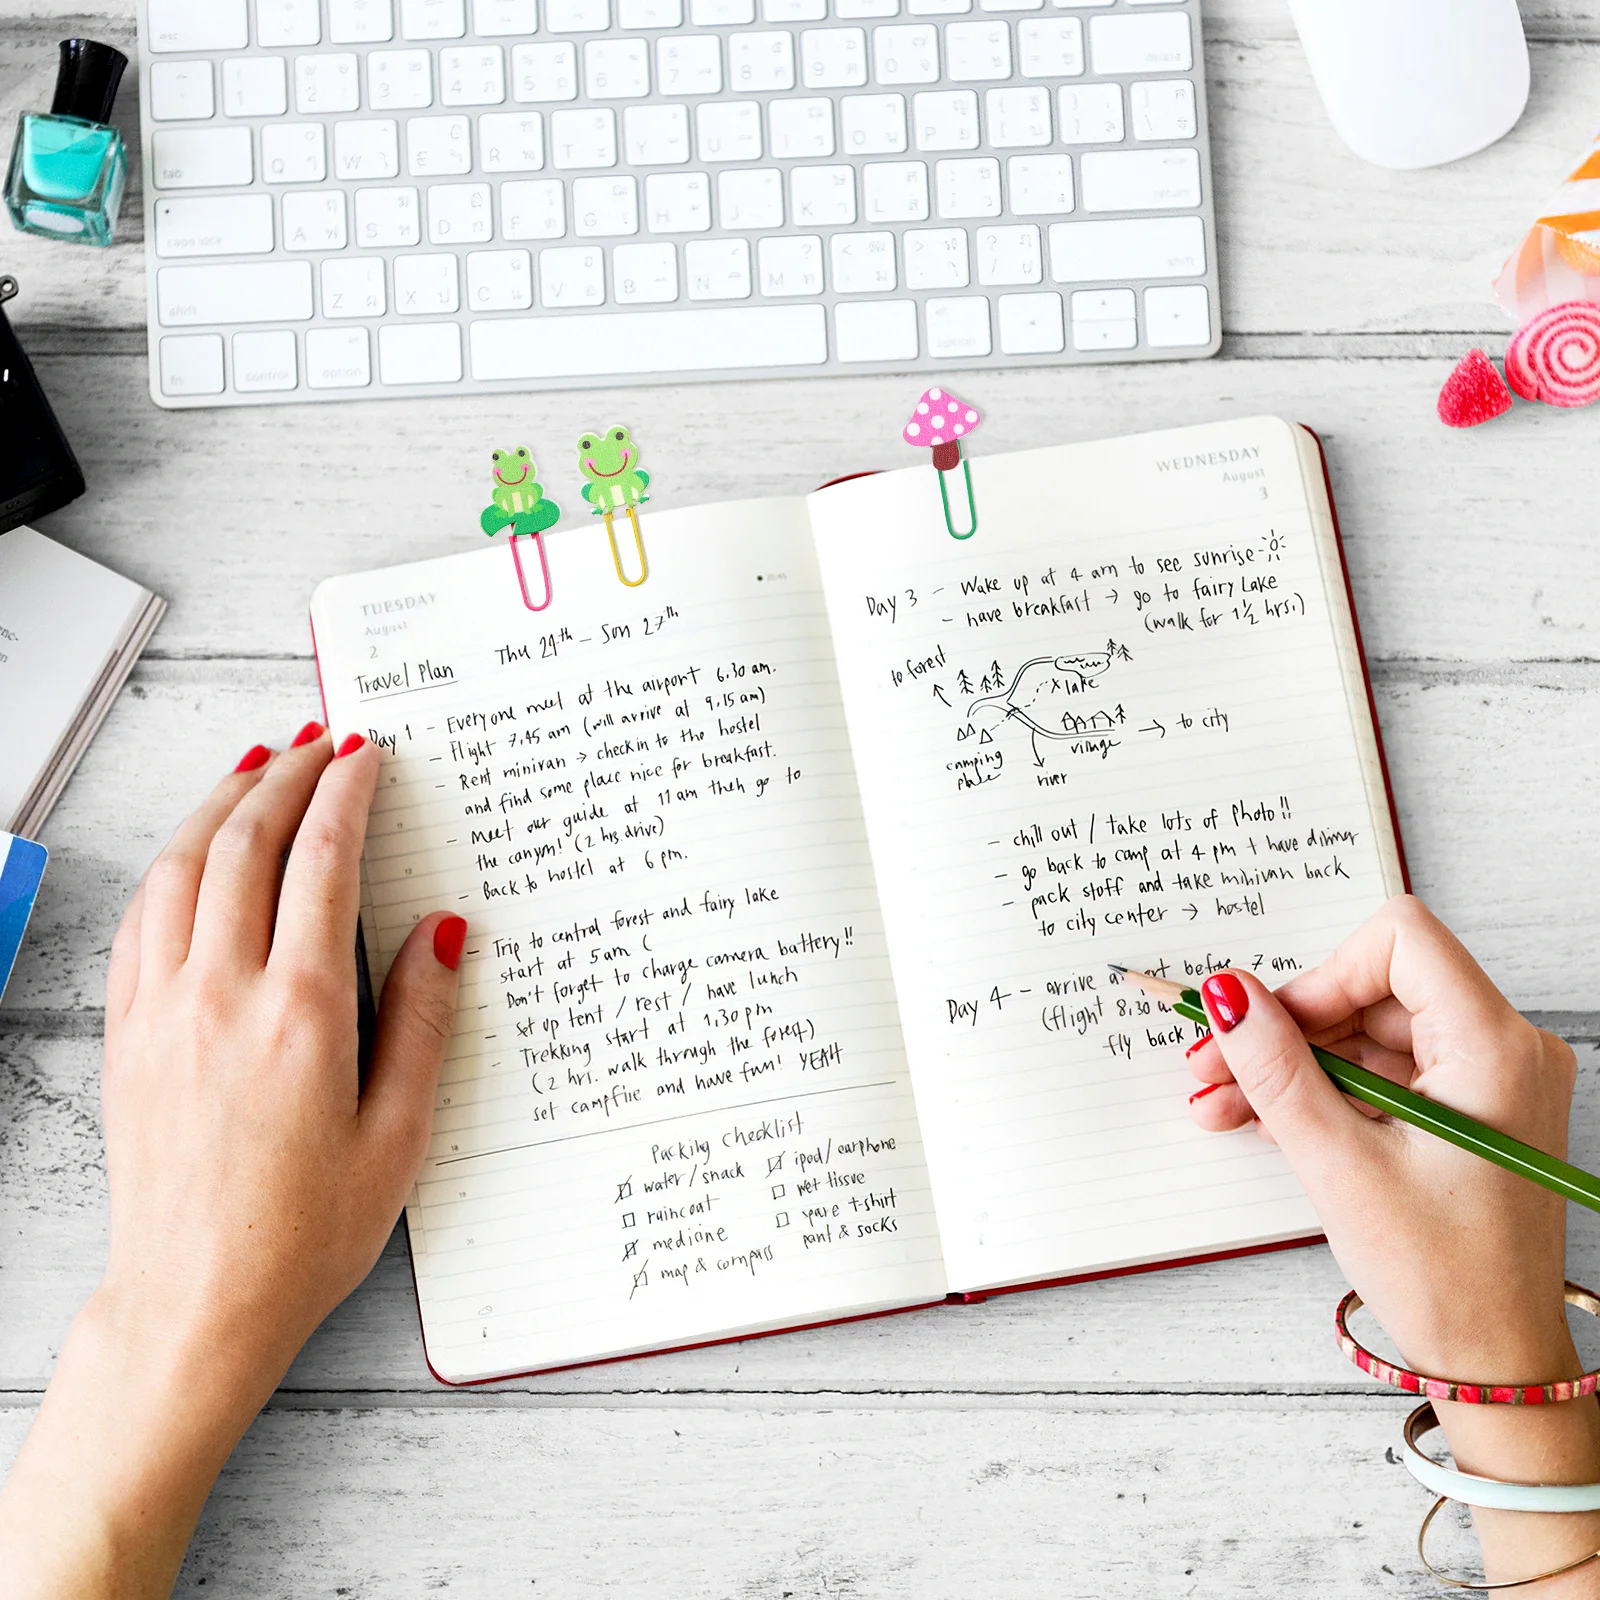 tab
caps lock
shift
fn
control
option
delete
return
shift
option
1 2 3 4 5 6 7 8 9 0
Q W E R T Y U I O P
A S D F G H J K L
Z X C V B N M
TUESDAY
August
2
Travel Plan
Thu 24th - Sun 27th
Day 1 - Everyone meet at the airport 6.30 am.
- Flight 7.45 am (will arrive at 9.15 am)
- Rent minivan → check in to the hostel
and find some place nice for breakfast.
- Meet our guide at 11 am then go to
the canyon! (2 hrs. drive)
- Back to hostel at 6 pm.
- Trip to central forest and fairy lake
start at 5 am (
- Don't forget to charge camera battery!!
- set up tent / rest / have lunch
- Trekking start at 1.30 pm
(2 hrs. walk through the forest)
set campfire and have fun! YEAH
Packing Checklist
water/snack
raincoat
medicine
map & compass
ipod/earphone
wet tissue
spare t-shirt
pant & socks
WEDNESDAY
August
3
Day 3 - Wake up at 4 am to see sunrise
- have breakfast → go to fairy Lake
(walk for 1½ hrs.)
to forest
x lake
camping
place
river
village
→ to city
- chill out / take lots of photo!!
- go back to camp at 4 pm + have dinner
- pack stuff and take minivan back
to city center → hostel
Day 4 - arrive before 7 am.
(flight 8.30
fly back